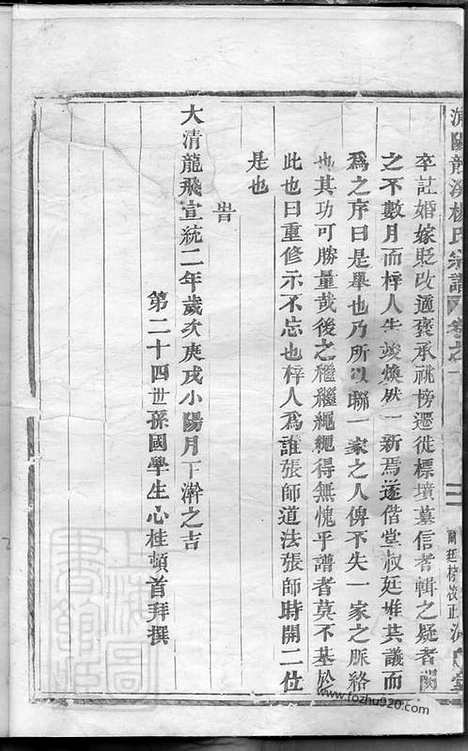 浦陽龍溪楊氏宗譜 卷之一 三
卒註婚嫁貶改適褒承祧榜遷徙標墳墓信者輯之疑者闕
之不數月而梓人告竣煥然一新焉遂偕堂叔廷堆其議而
爲之序曰是舉也乃所以聯一家之人俾不失一家之脈絡
也其功可勝量哉後之繼繼繩繩得無愧乎譜者莫不基於
此也曰重修示不忘也梓人爲誰張師道法張師時開二位
是也
旹
大清龍飛宣統二年歲次庚戌小陽月下澣之吉
第二十四世孫國學生心桂頓首拜撰
www.fozhu920.com